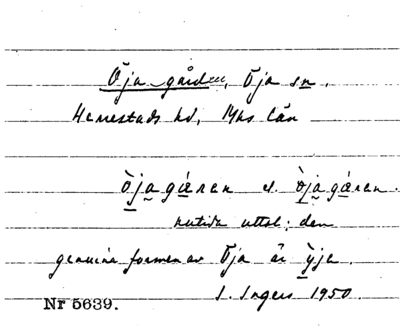 Öja gård, Öja sn.
Herrestads hd, Mhs län
öjagåran el. öjagåran.
nutida uttal; den
genuina formen av Öja är yja.
I. Ingers 1950.
Nr 5639.